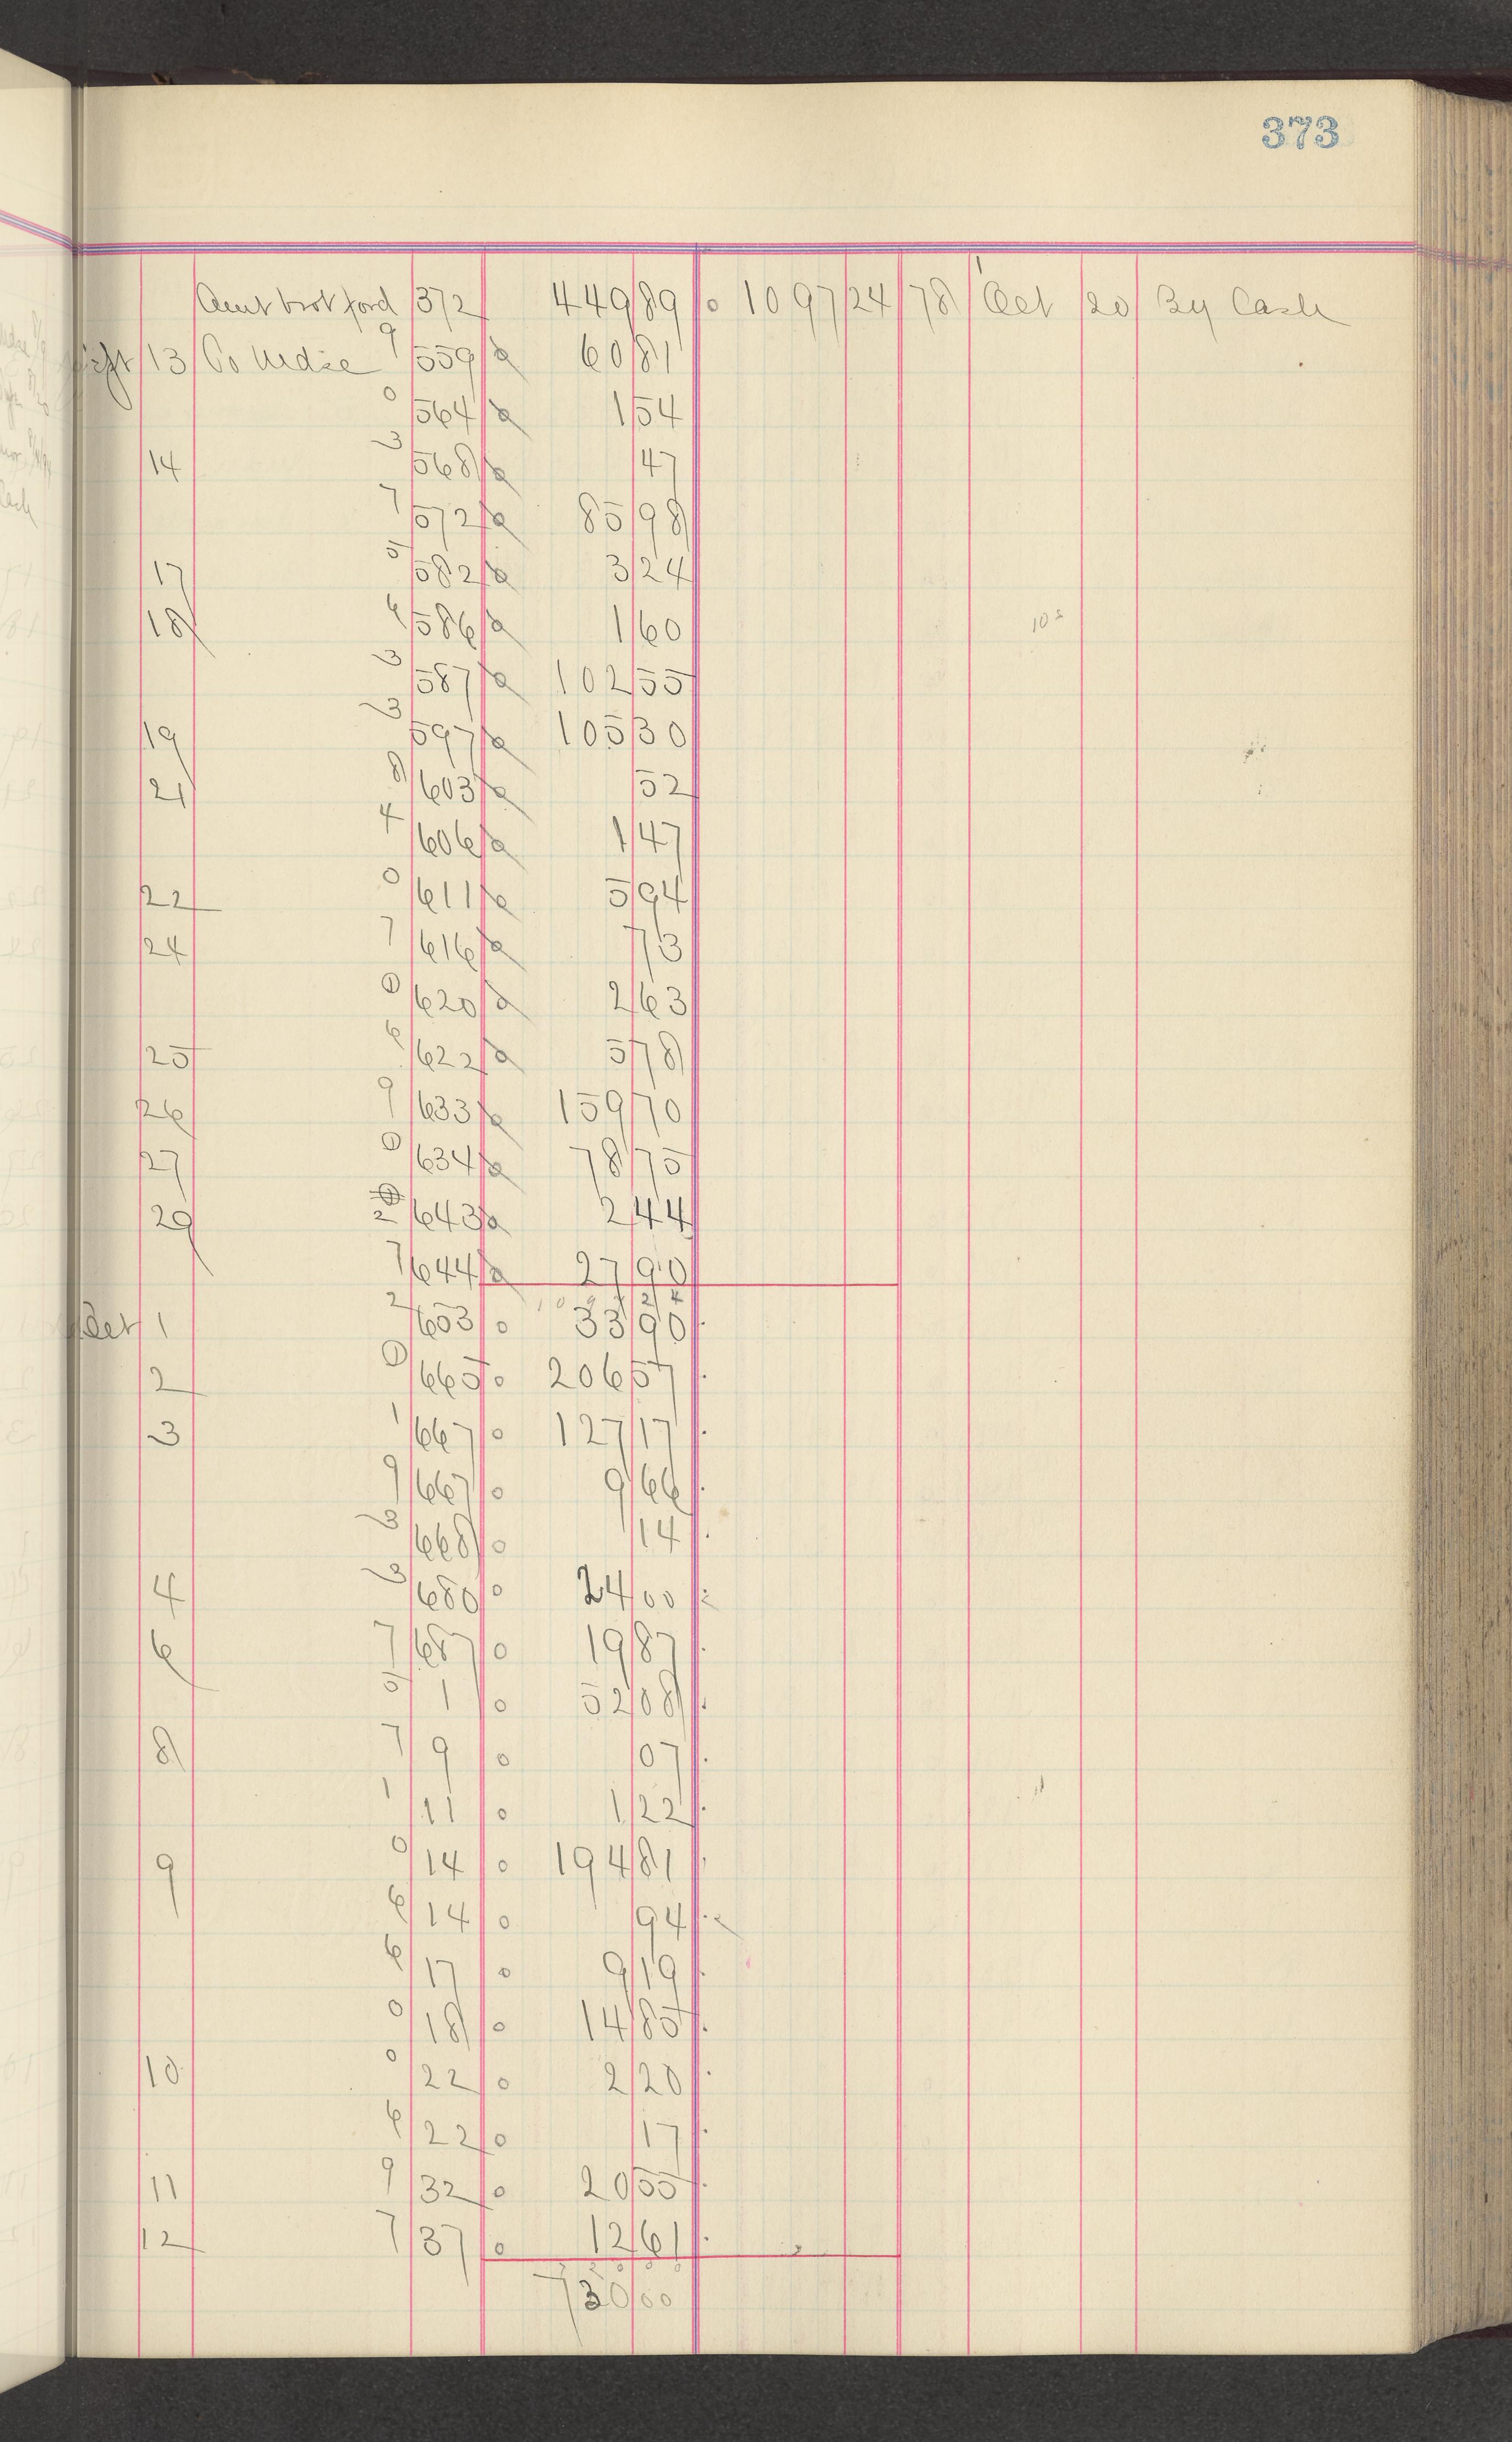 373
Amt brot ford 372 449 89 0 1097 24 78 Oct 20 By Cash
Sept 13 To Mdse 9 559 60 81
0 564 1 54
14 3 568 47
7 572 85 98
17 5 582 3 24
18 6 586 1 60
3 587 102 55
19 3 597 105 30
21 8 603 52
4 606 1 47
22 0 611 5 94
24 7 616 73
0 620 2 63
25 6 622 5 78
26 9 633 159 70
27 0 634 78 75
29 2 643 2 44
7 644 27 90
Oct 1 2 653 0 33 90
2 0 665 0 206 57
3 1 667 0 127 17
9 667 0 9 66
3 668 0 14
4 3 680 0 24 00
6 7 687 0 19 87
5 1 0 52 08
8 7 9 0 07
1 11 0 1 22
9 0 14 0 194 81
6 14 0 94
6 17 0 9 19
0 18 0 14 85
10 0 22 0 2 20
6 22 0 17
11 9 32 0 20 55
12 7 37 0 12 61
730 00